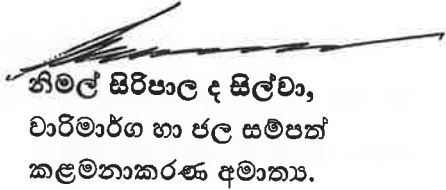 නිමල් සිරිපාල ද සිල්වා,
වාරිමාර්ග හා ජල සම්පත්
කළමනාකරණ අමාත්‍ය.